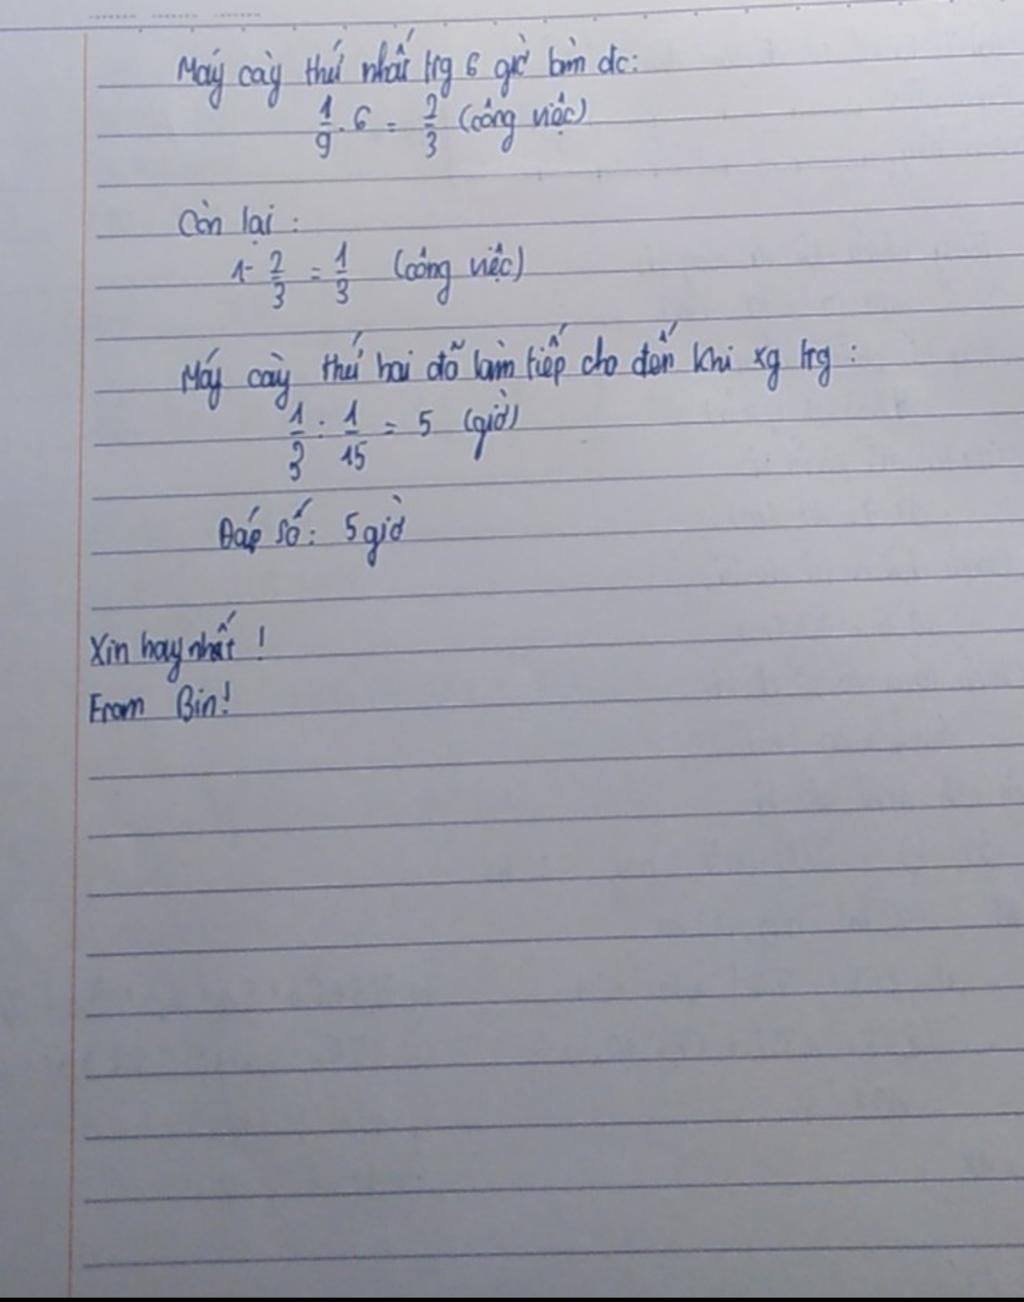 Máy cày thứ nhất trg 6 giờ làm dc:
1/9 . 6 = 2/3 (công việc)
Còn lại :
1 - 2/3 = 1/3 (công việc)
Máy cày thứ hai đã làm tiếp cho đến khi xg trg :
1/3 : 1/15 = 5 (giờ)
Đáp số : 5 giờ
Xin hay nhất !
From Bin!